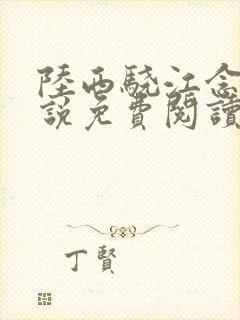 陸西驍江念
說免費閱讀
丁賢